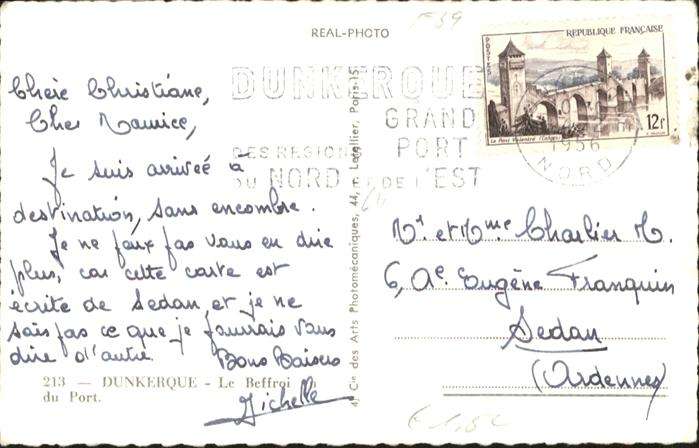 REAL-PHOTO
F 59
REPUBLIQUE FRANÇAISE
POSTES
12f
Le Pont Valentré (Cahors)
DUNKERQUE
GRAND
PORT
DES REGIONS
DU NORD ET DE L'EST
1956
NORD
Chère Christiane,
Cher Maurice,
Je suis arrivée à
destination, sans encombre.
Je ne peux pas vous en dire
plus, car cette carte est
écrite de Sedan, et je ne
sais pas ce que je pourrais vous
dire d'autre. Bons Baisers
Michelle
213 — DUNKERQUE - Le Beffroi
du Port.
Cie des Arts Photomécaniques, 44, r. Letellier, Paris-15
Mr et Mme Charlier M.
6, Ae. Eugène Franquin
Sedan
(Ardennes)